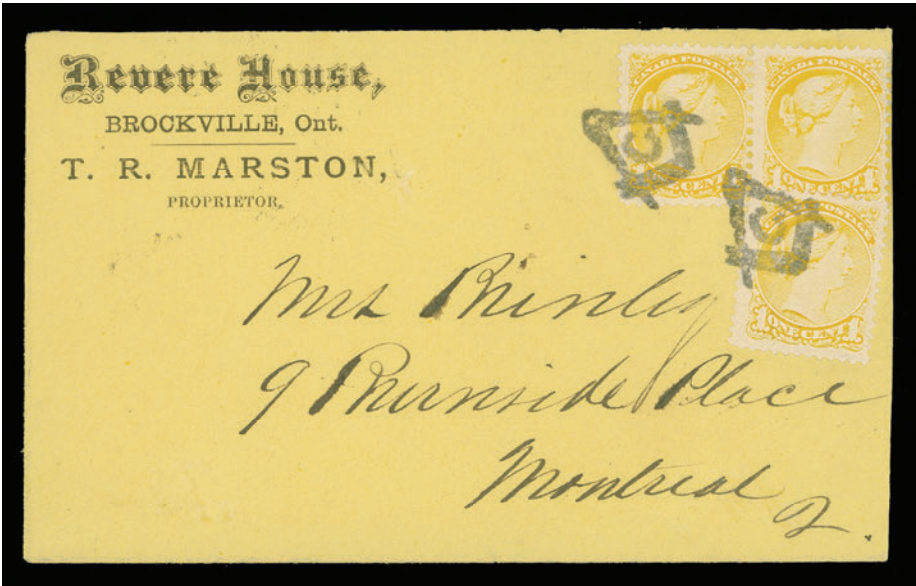 Revere House,
BROCKVILLE, Ont.
T. R. MARSTON,
PROPRIETOR.
CANADA POSTAGE
ONE CENT
CANADA POSTAGE
1 ONE CENT 1
POSTAGE
1 ONE CENT 1
Mrs Brinley
9 Burnside Place
Montreal